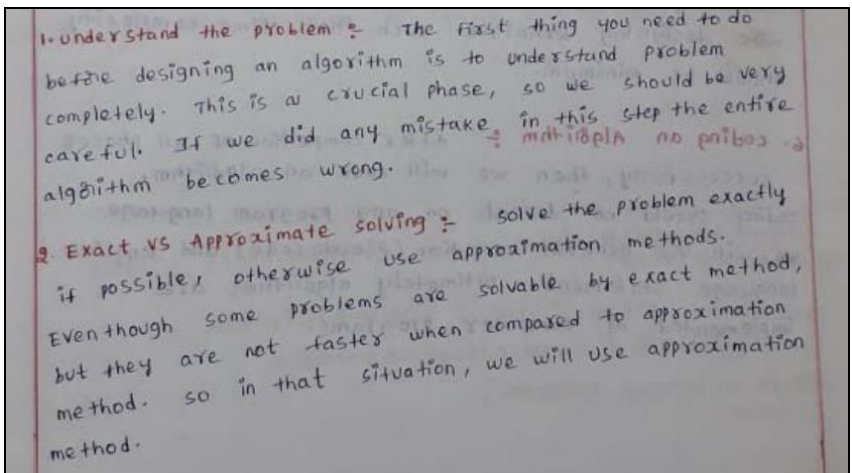 1. Understand the problem :- The First thing you need to do
before designing an algorithm is to understand problem
completely. This is a crucial phase, so we should be very
careful. If we did any mistake in this step the entire
algorithm becomes wrong.
2. Exact vs Approximate solving :- solve the problem exactly
if possible, otherwise use approximation methods.
Even though some problems are solvable by exact method,
but they are not faster when compared to approximation
method. so in that situation, we will use approximation
method.